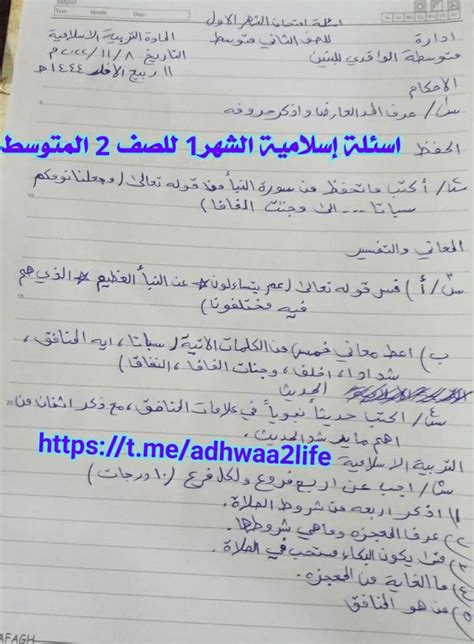 اسئلة امتحان الشهر الاول
ادارة للصف الثاني متوسط المادة التربية الاسلامية
متوسطة الواقدي للبنين التاريخ ٢٠٢٢/١١/٨م
١١ ربيع الاخر ١٤٤٤هـ
الاحكام
س١/ عرف المد العارض واذكر حروفه
الحفظ اسئلة إسلامية الشهر1 للصف 2 المتوسط
س٢/ أكتب ما تحفظ من سورة النبأ من قوله تعالى (وجعلنا نومكم
سباتا ---- الى وجنت الفافا)
المعاني والتفسير
س٣/ أ) فسر قوله تعالى (عم يتساءلون * عن النبأ العظيم * الذي هم
فيه مختلفونا)
ب) اعط معاني خمس من الكلمات الاتية (سباتا، اية المنافق،
شدادا، اخلف، وجنات الفافا، النفاقا)
الحديث
س٤/ اكتب حديثاً نبوياً في علامات المنافق، مع ذكر اثنان من
اهم ما يرشد الحديث،
https://t.me/adhwaa2life
التربية الاسلامية
س٥/ اجب عن اربع فروع ولكل فرع (١٠ درجات)
١) اذكر اربعه من شروط الصلاة.
٢) عرف المعجزه وماهي شروطها.
٣) متى يكون البكاء مستحب في الصلاة.
٤) ما الغاية من المعجزه.
٥) من هو المنافق
AFAGH